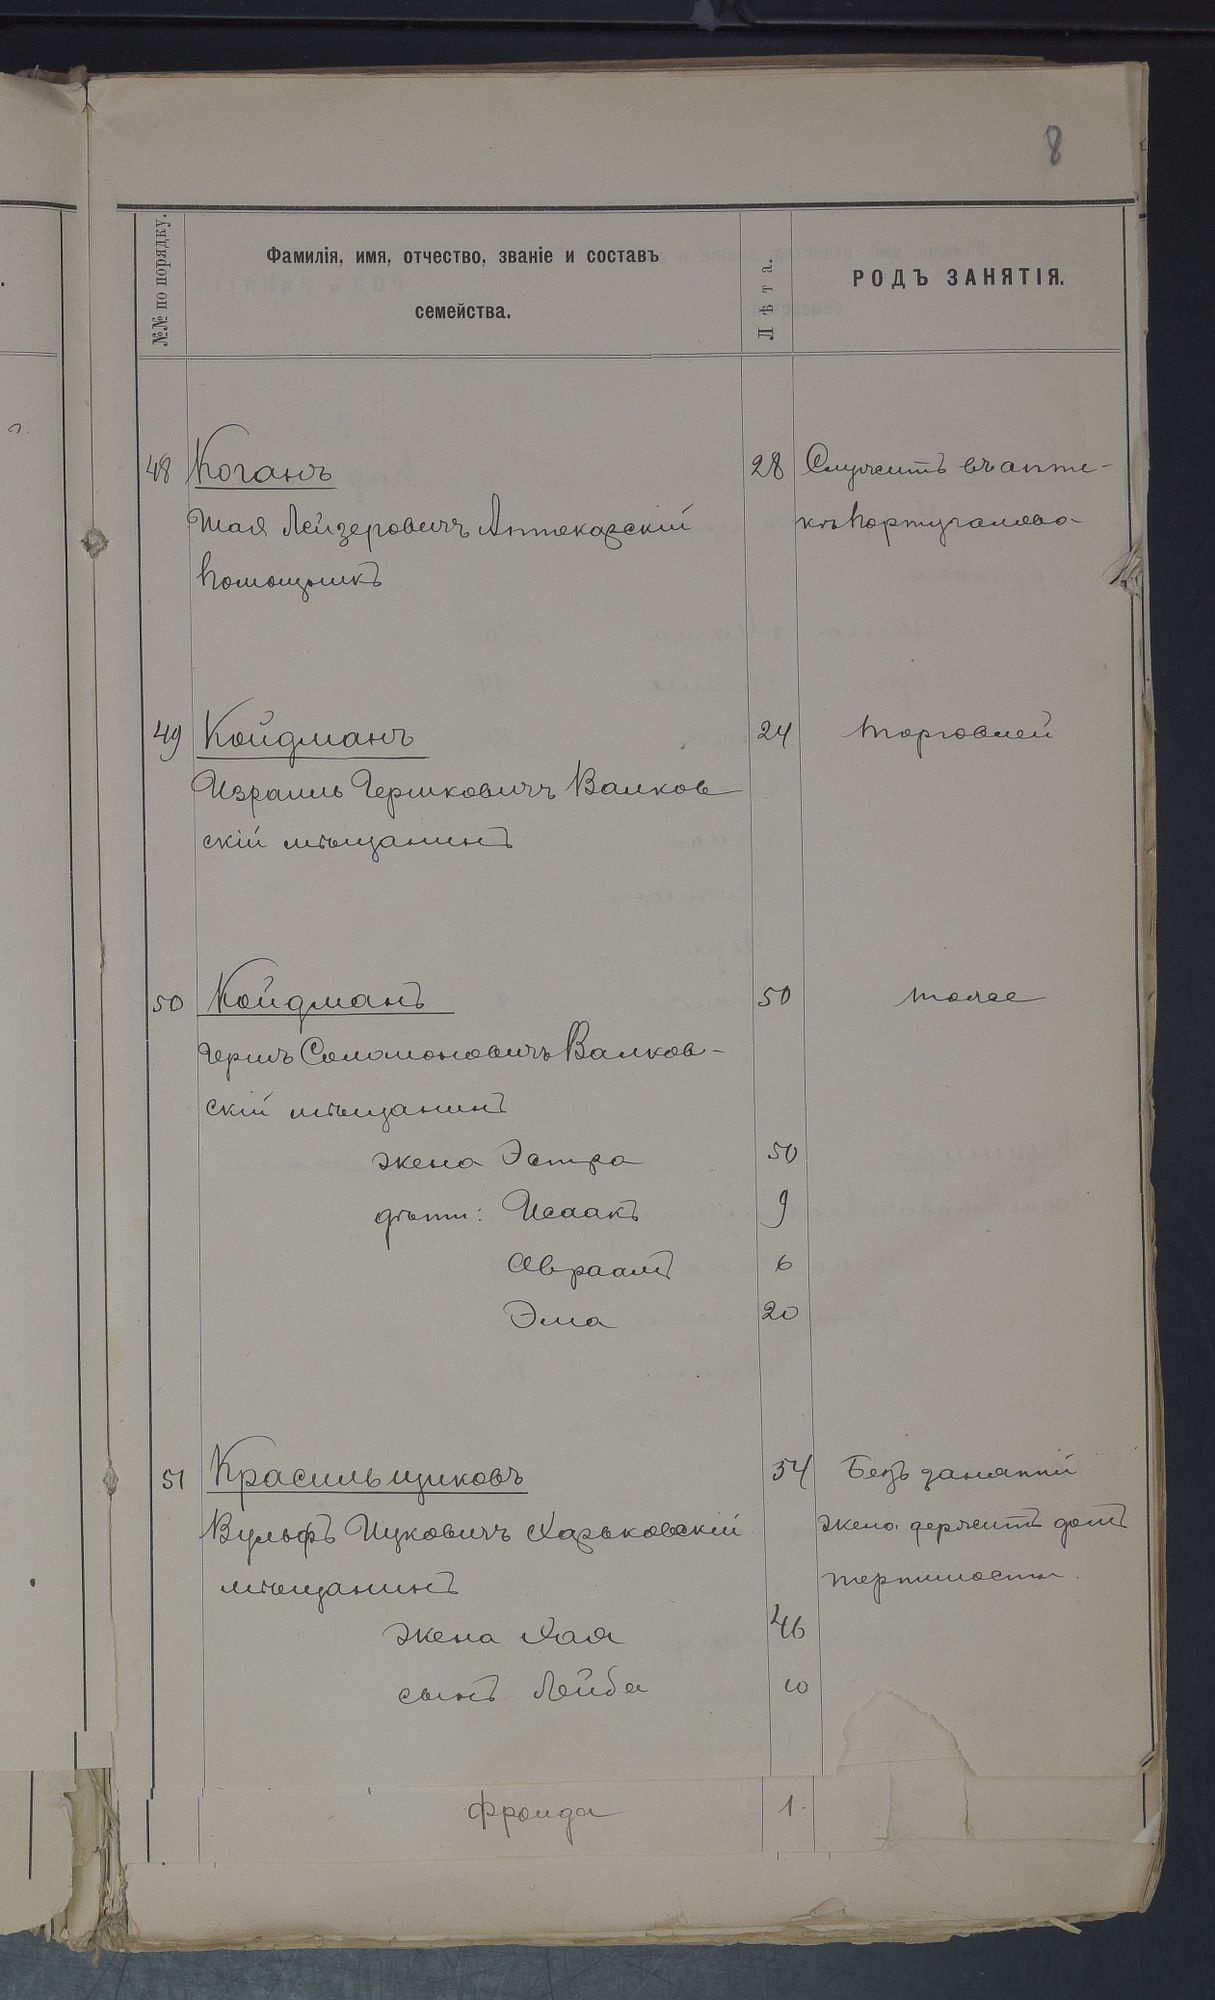 8
№№ по порядку.
Фамилія, имя, отчество, званіе и составъ
семейства.
Лѣта.
РОДЪ ЗАНЯТІЯ.
48 Коганъ 28 Служитъ въ апте-
Шая Лейзеровичъ Аптекарскій кѣ Португалова
помощникъ
49 Койдманъ 24 торговлей
Израиль Гершковичъ Валков
скій мѣщанинъ
50 Койдманъ 50 тоже
Гершъ Соломоновичъ Валков-
скій мѣщанинъ
жена Эстра 50
дѣти: Исаакъ 9
Авраамъ 6
Эма 20
51 Красильщиковъ 54 Безъ занятій
Вульфъ Ицковичъ Харьковскій жена держитъ домъ
мѣщанинъ терпимости.
жена Хая 46
сынъ Лейба 10
Фроида 1.